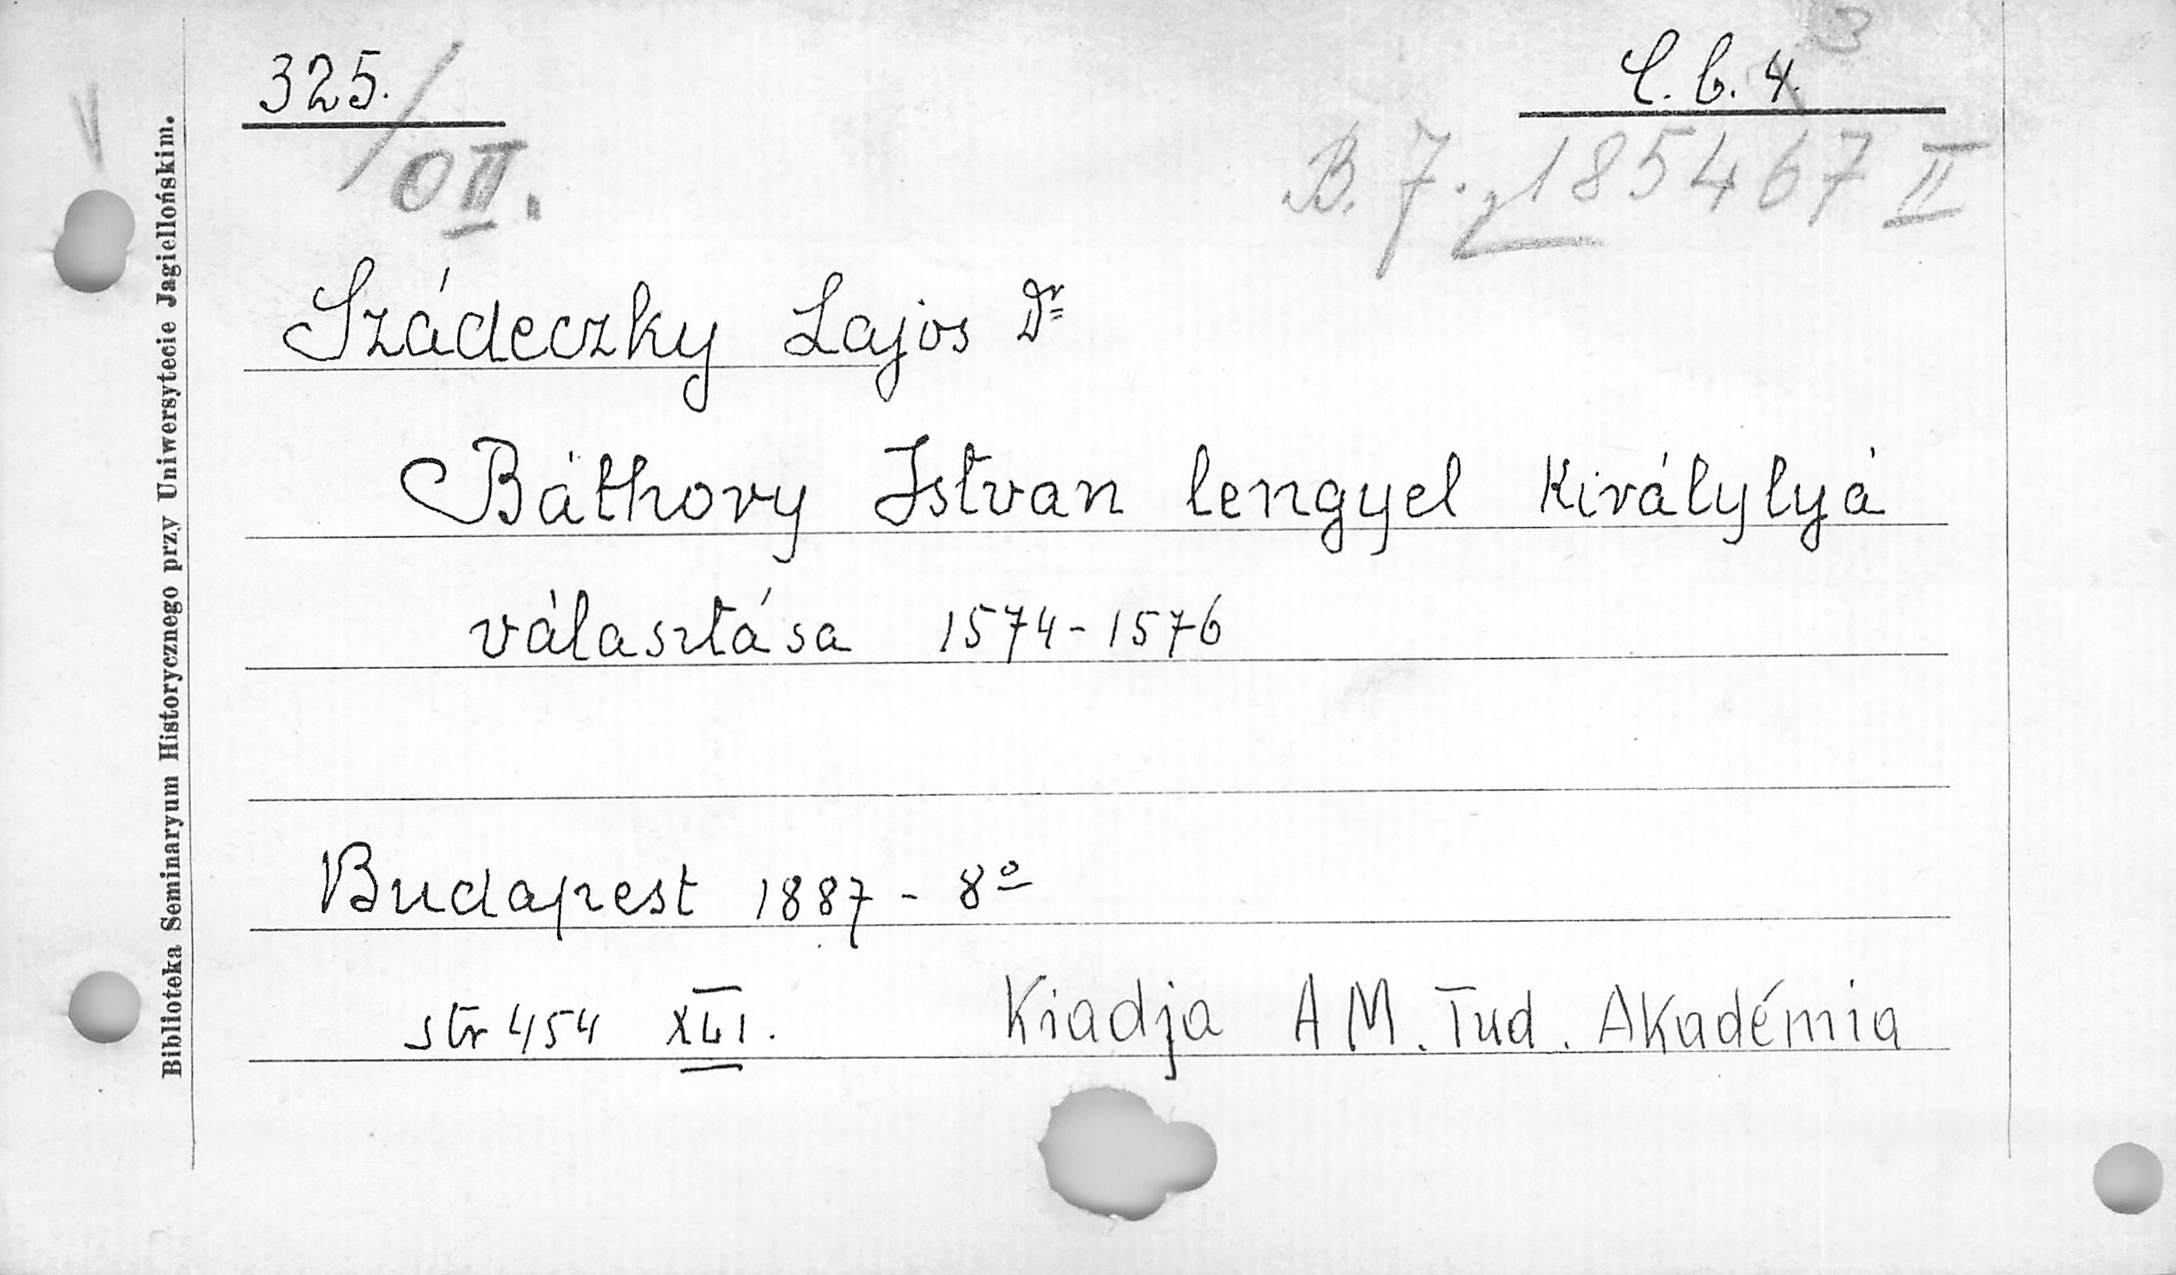 325. C. b. 4. 3
/OII. B. 7. 185467 II
V
Szádeczky Lajos Dr
Báthory Istvan lengyel Királylyá
választása 1574-1576
Budapest 1887 - 8o
str 454 XLI. Kiadja A M. Tud. Akadémia
Biblioteka Seminaryum Historycznego przy Uniwersytecie Jagiellońskim.